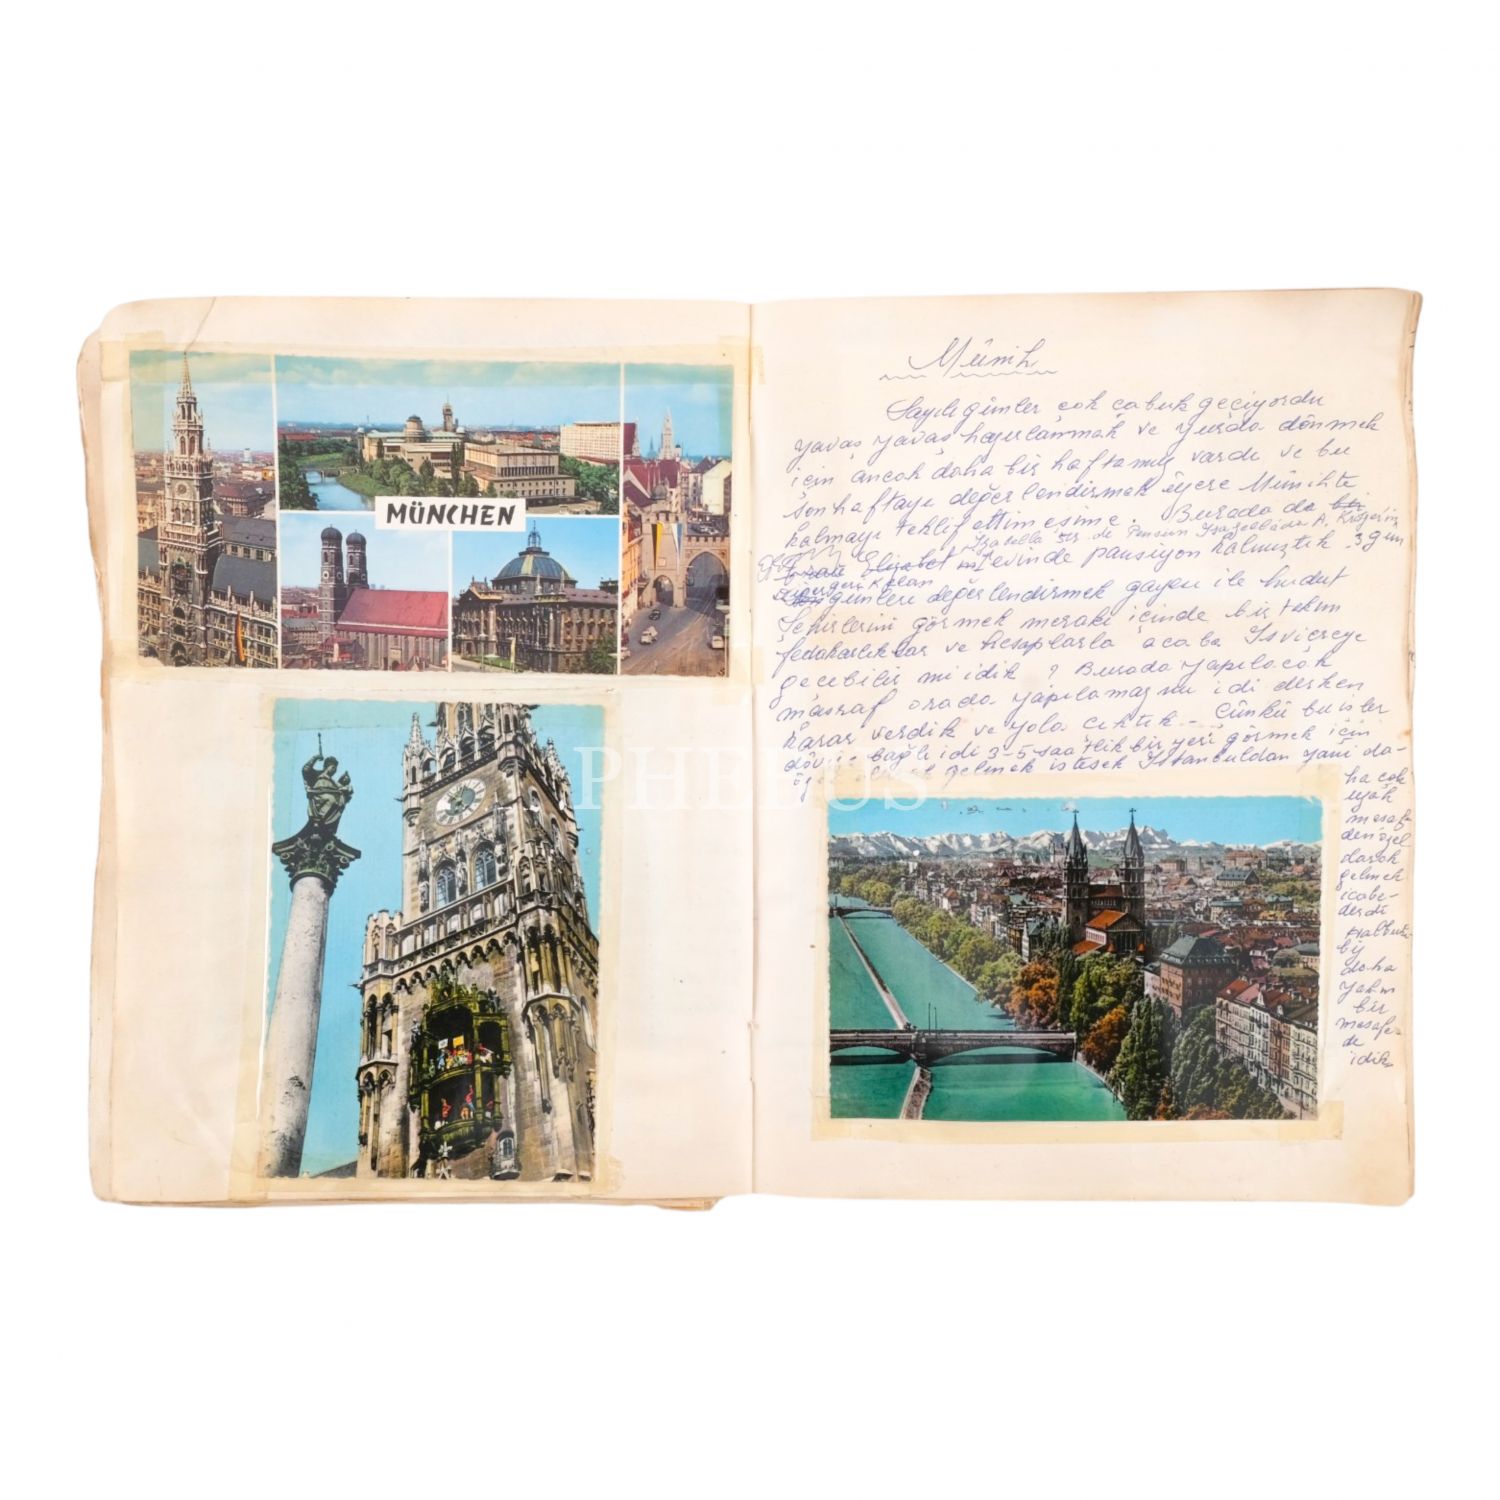 MÜNCHEN
Münih
Sayılı günler çok çabuk geçiyordu
yavaş yavaş hazırlanmak ve yurda dönmek
için ancak daha bir haftamız vardı ve bu
son haftayı değerlendirmek üzere Münihte
kalmayı teklif ettim eşime. Burada da bir
Izabella
Elizabet evinde pansiyon kalmıştık 3 gün
günleri değerlendirmek gayesi ile hudut
şehirlerini görmek merakı içinde bir takım
fedakarlıklar ve hesaplarla acaba İsviçreye
geçebilir mi idik ? Burada yapılacak
masraf orada yapılamaz mı idi derken
karar verdik ve yola çıktık - Çünkü bu işler
dövize bağlı idi 3-5 saatlik bir yeri görmek için
gelmek istesek İstanbuldan yani da-
ha çok
uzak
mesafe
den özel
olarak
gelmek
icabe-
derdi
Halbuki
biz
daha
yakın
bir
mesafe-
de
idik
PHEBUS